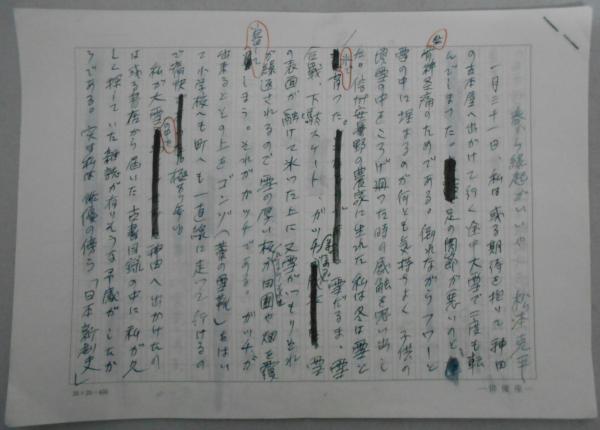 春ら縁起がいいや 松本克平
一月三十一日、私は或る期待を抱いて神田
の古本屋へ出かけて行く途中大雪で三度も転
んでしまった。足の関節が悪いのと
の為である。倒れながらフワーと
雪の中に埋まるのが何とも気持ちよく子供の
頃雪の中をころげ廻った時の感触を思い出し
た。信州安曇野の農家に生れた私は冬は雪と
育った。雪だるま、雪
合戦、下駄スケート、ガッチ
の表面が融けて氷った上に又雪がつもりそれ
が繰返されるので雪の厚い板が田圃や畑を覆
てしまう。それがガッチである。ガッチが
出来るとその上をゴンゾ(藁の雪靴)をはい
て小学校へも町へも一直線に走って行けるの
で愉快極まりない
私が大雪の日に神田へ出かけたの
は或る書店から届いた古書目録の中に私が久
しく探していた雑誌が有りそうな予感がしたか
らである。実は私は俳優の傍ら「日本新劇史」
20×20=400
俳優座